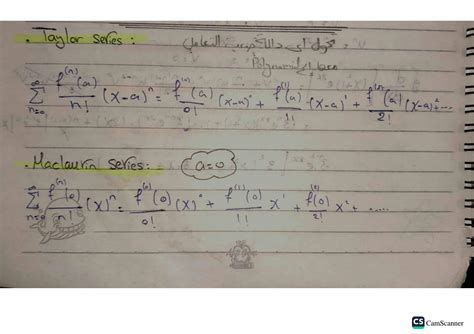 . Taylor series :
Polynomial
∞ Σ n=0 f^(n)(a)/n! (x-a)^n = f^(0)(a)/0! (x-a)^0 + f^(1)(a)/1! (x-a)^1 + f^(2)(a)/2! (x-a)^2 + ...
. Maclaurin series : a=0
∞ Σ n=0 f^(n)(0)/n! (x)^n = f^(0)(0)/0! (x)^0 + f^(1)(0)/1! x^1 + f^(2)(0)/2! x^2 + ....
CS CamScanner